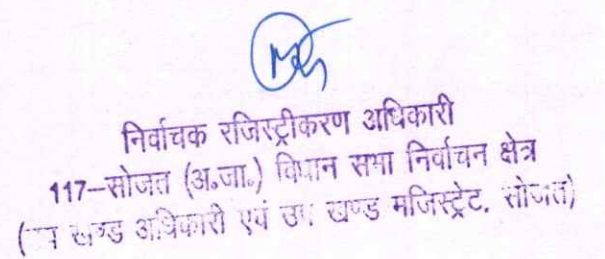 निर्वाचक रजिस्ट्रीकरण अधिकारी
117–सोजत (अ.जा.) विधान सभा निर्वाचन क्षेत्र
(उप खण्ड अधिकारी एवं उप खण्ड मजिस्ट्रेट, सोजत)